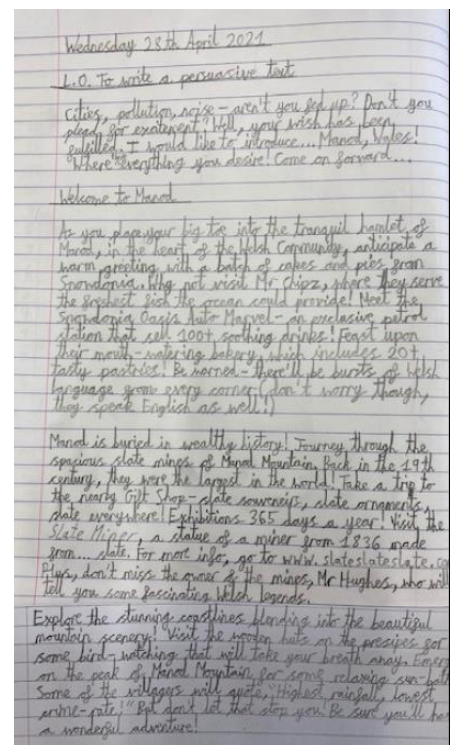 Wednesday 28th April 2021
L.O. To write a persuasive text
Cities, pollution, noise - aren't you fed up? Don't you
plead for exatement? Well, your wish has been
fulfilled. I would like to introduce... Manod, Wales!
Where everything you desire! Come on forward...
Welcome to Manod
As you place your big toe into the tranquil hamlet of
Manod, in the heart of the Welsh Community, anticipate a
warm greeting with a batch of cakes and pies from
Snowdonia. Why not visit Mr Chipz, where they serve
the freshest fish the ocean could provide! Meet the
Snowdonia Oasis Auto Marvel - an exclusive petrol
station that sell 100+ soothing drinks! Feast upon
their mouth-watering bakery, which includes 20+
tasty pastries! Be warned - there'll be bursts of Welsh
language from every corner (don't worry though,
they speak English as well!)
Manod is buried in wealthy history! Journey through the
spacious slate mines of Manod Mountain. Back in the 19th
century, they were the largest in the world! Take a trip to
the nearby Gift Shop - slate souvenirs, slate ornaments,
slate everywhere! Exhibitions 365 days a year! Visit the
Slate Miner, a statue of a miner from 1836 made
from... slate. For more info, go to www.slateslateslate.co
Plus, don't miss the owner of the mines, Mr Hughes, who will
tell you some fascinating Welsh legends.
Explore the stunning coastlines blending into the beautiful
mountain scenery! Visit the wooden huts on the presipes for
some bird-watching that will take your breath away. Emerg
on the peak of Manod Mountain for some relaxing sun-bath
Some of the villagers will quote, "Highest rainfall, lowest
crime-rate!" But don't let that stop you. Be sure you'll ha
a wonderful adventure!